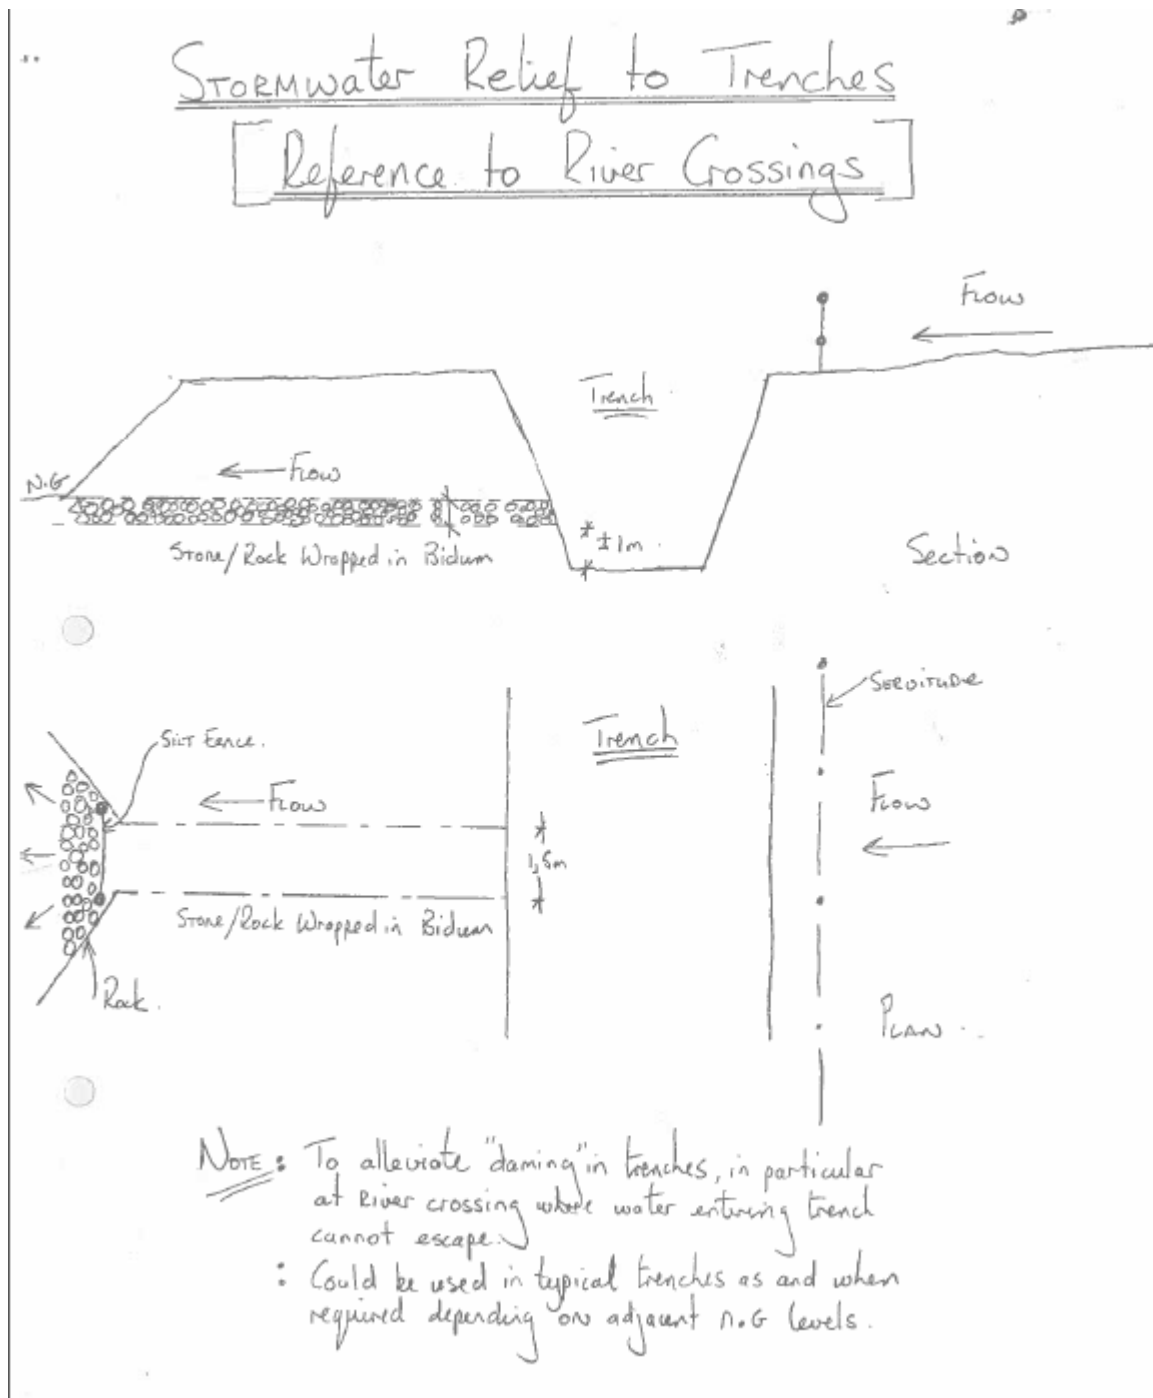 STORMWATER Relief to Trenches
[Reference to River Crossings]
FLOW
Trench
FLOW
N.G
* ± 1m
STONE/ROCK Wrapped in Bidum
Section
SERVITUDE
SILT FENCE.
Trench
FLOW
FLOW
1,5m
STONE/ROCK Wrapped in Bidum
Rock.
PLAN
NOTE: To alleviate "daming" in trenches, in particular
at River crossing where water entering trench
cannot escape.
: Could be used in typical trenches as and when
required depending on adjacent n.G levels.